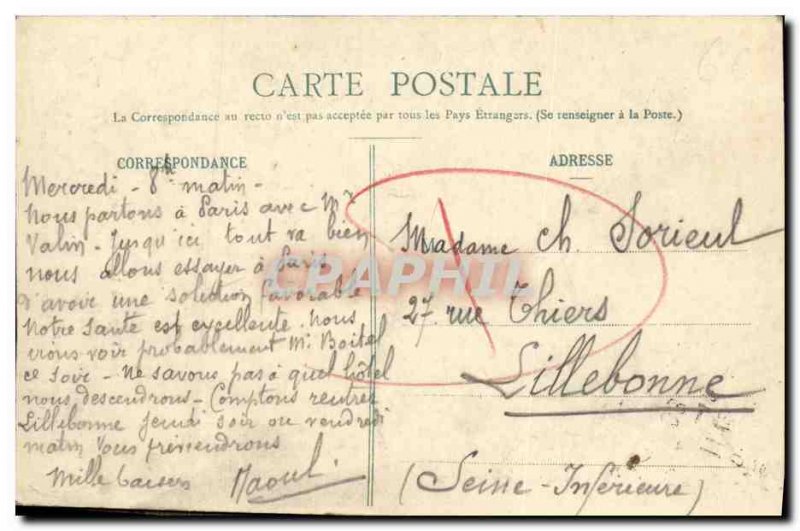 CARTE POSTALE
La Correspondance au recto n'est pas acceptée par tous les Pays Étrangers. (Se renseigner à la Poste.)
CORRESPONDANCE
Mercredi - 8h matin -
Nous partons à Paris avec Mr
Valin - Jusqu'ici tout va bien
nous allons essayer à Paris
d'avoir une solution favorable
Notre santé est excellente. Nous
irons voir probablement Mr. Boitel
ce soir - Ne savons pas à quel hôtel
nous descendrons - Comptons rentrer
Lillebonne jeudi soir ou vendredi
matin Vous préviendrons
Mille baisers Raoul.
ADRESSE
Madame Ch. Sorieul
27 rue Thiers
Lillebonne
(Seine-Inférieure)
CPAPHIL